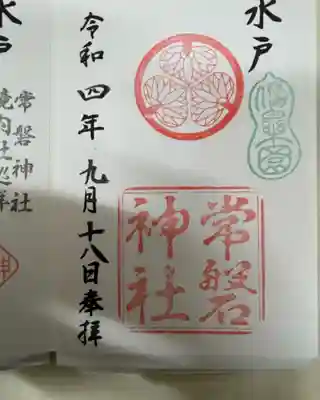 水戸
偕楽園
常磐
神社
令和四年九月十八日奉拝
水戸
常磐神社
境内社巡拝